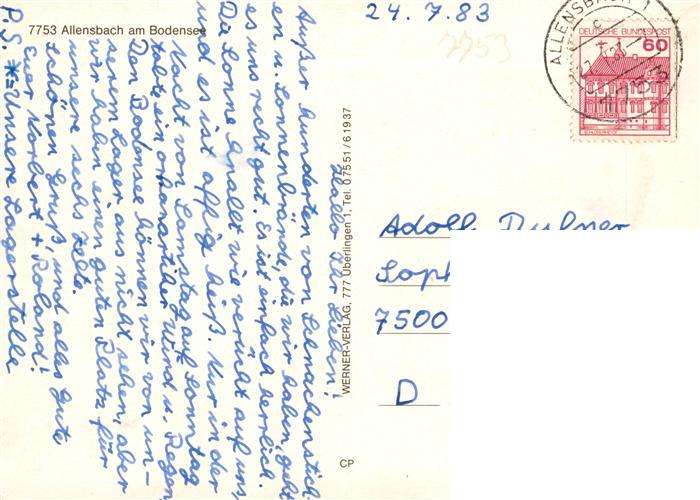 7753 Allensbach am Bodensee
24.7.83
7753
ALLENSBACH 1
DEUTSCHE BUNDESPOST
60
Hallo Ihr Lieben!
Außer hunderten von Schnackenstich
en u. Sonnenbrände, die wir haben, geht
es uns recht gut. Es ist einfach herrlich.
Die Sonne knallt wie verückt auf uns,
und es ist affig heiß. Nur in der
Nacht von Samstag auf Sonntag
tobte ein orkanartiker Wind u. Regen,
Den Bodensee können wir von un-
serem Lager aus nicht sehen, aber
wir haben einen guten Platz für
unsere sechs Zelte.
schönen Gruß, und alles Gute
Euer Norbert + Roland!
P.S. *=Unsere Lagerstelle
WERNER-VERLAG, 777 Überlingen 1, Tel. 07551/61937
CP
Adolf
7500
D